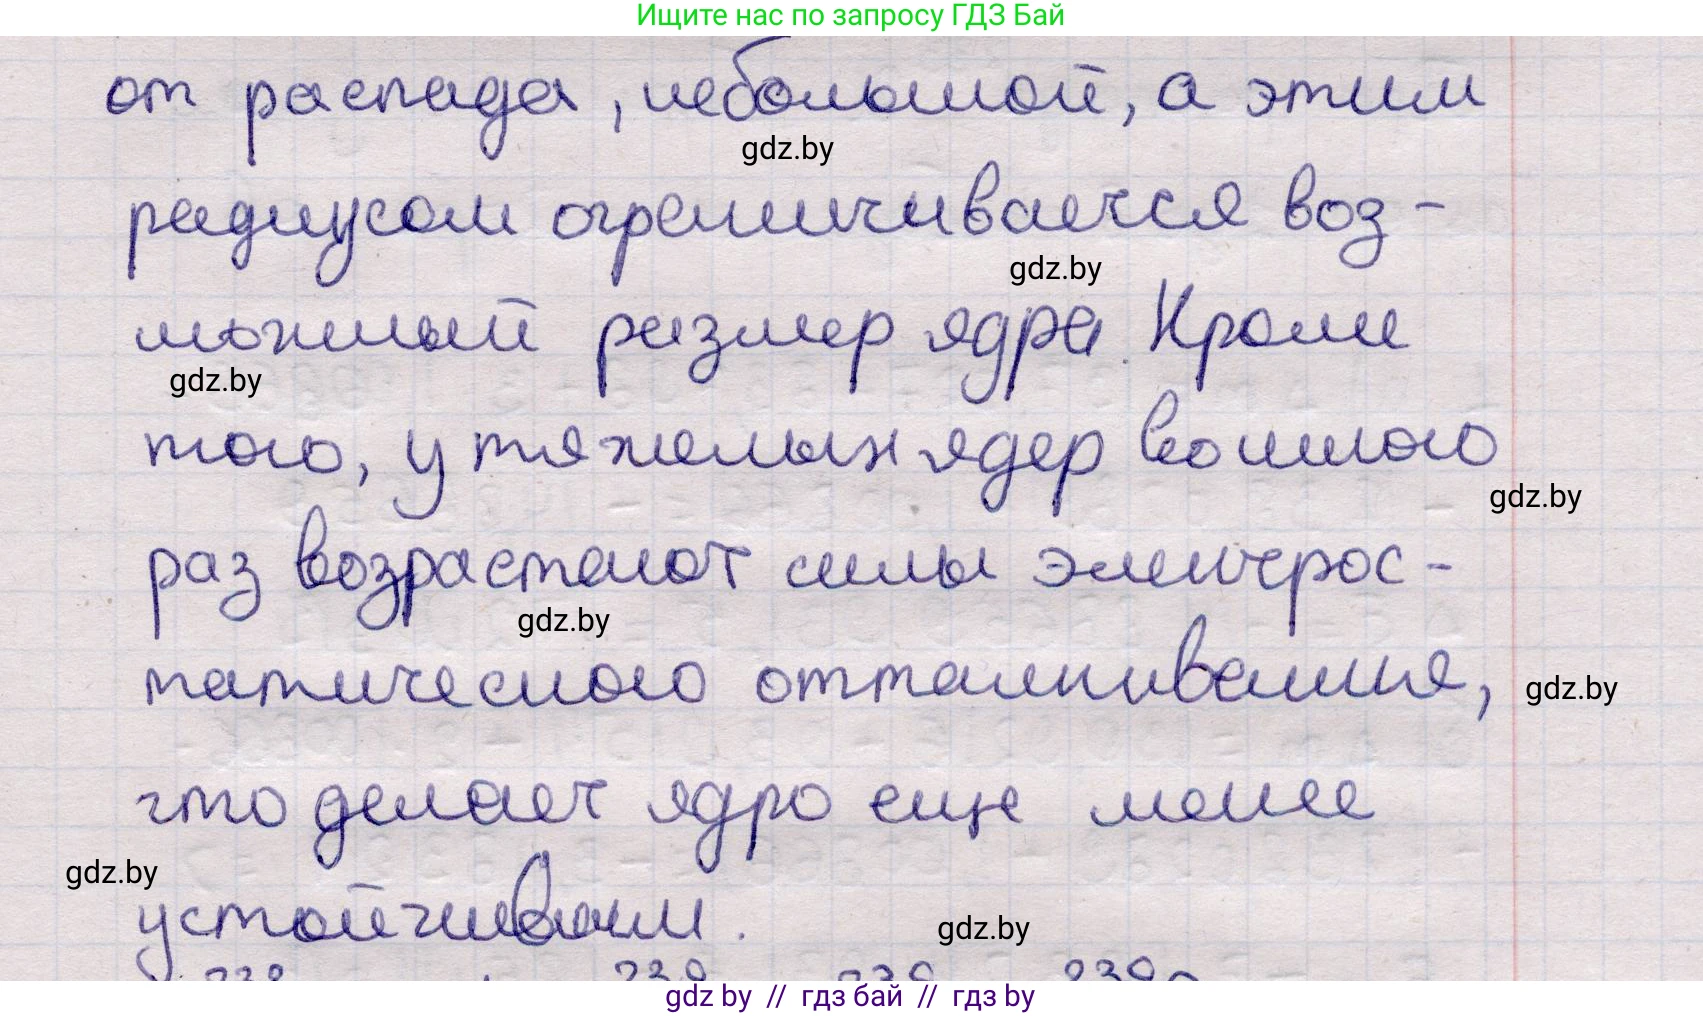 Ищите нас по запросу ГДЗ Бай
от распада, небольшой, а этим
gdz.by
радиусом ограничивается воз-
gdz.by
можный размер ядра. Кроме
gdz.by
того, у тяжелых ядер во много
gdz.by
раз возрастают силы электрос-
gdz.by
татического отталкивания,
gdz.by
что делает ядро еще менее
gdz.by
устойчивым.
gdz.by
238 239 239 239
gdz by // гдз бай // гдз by